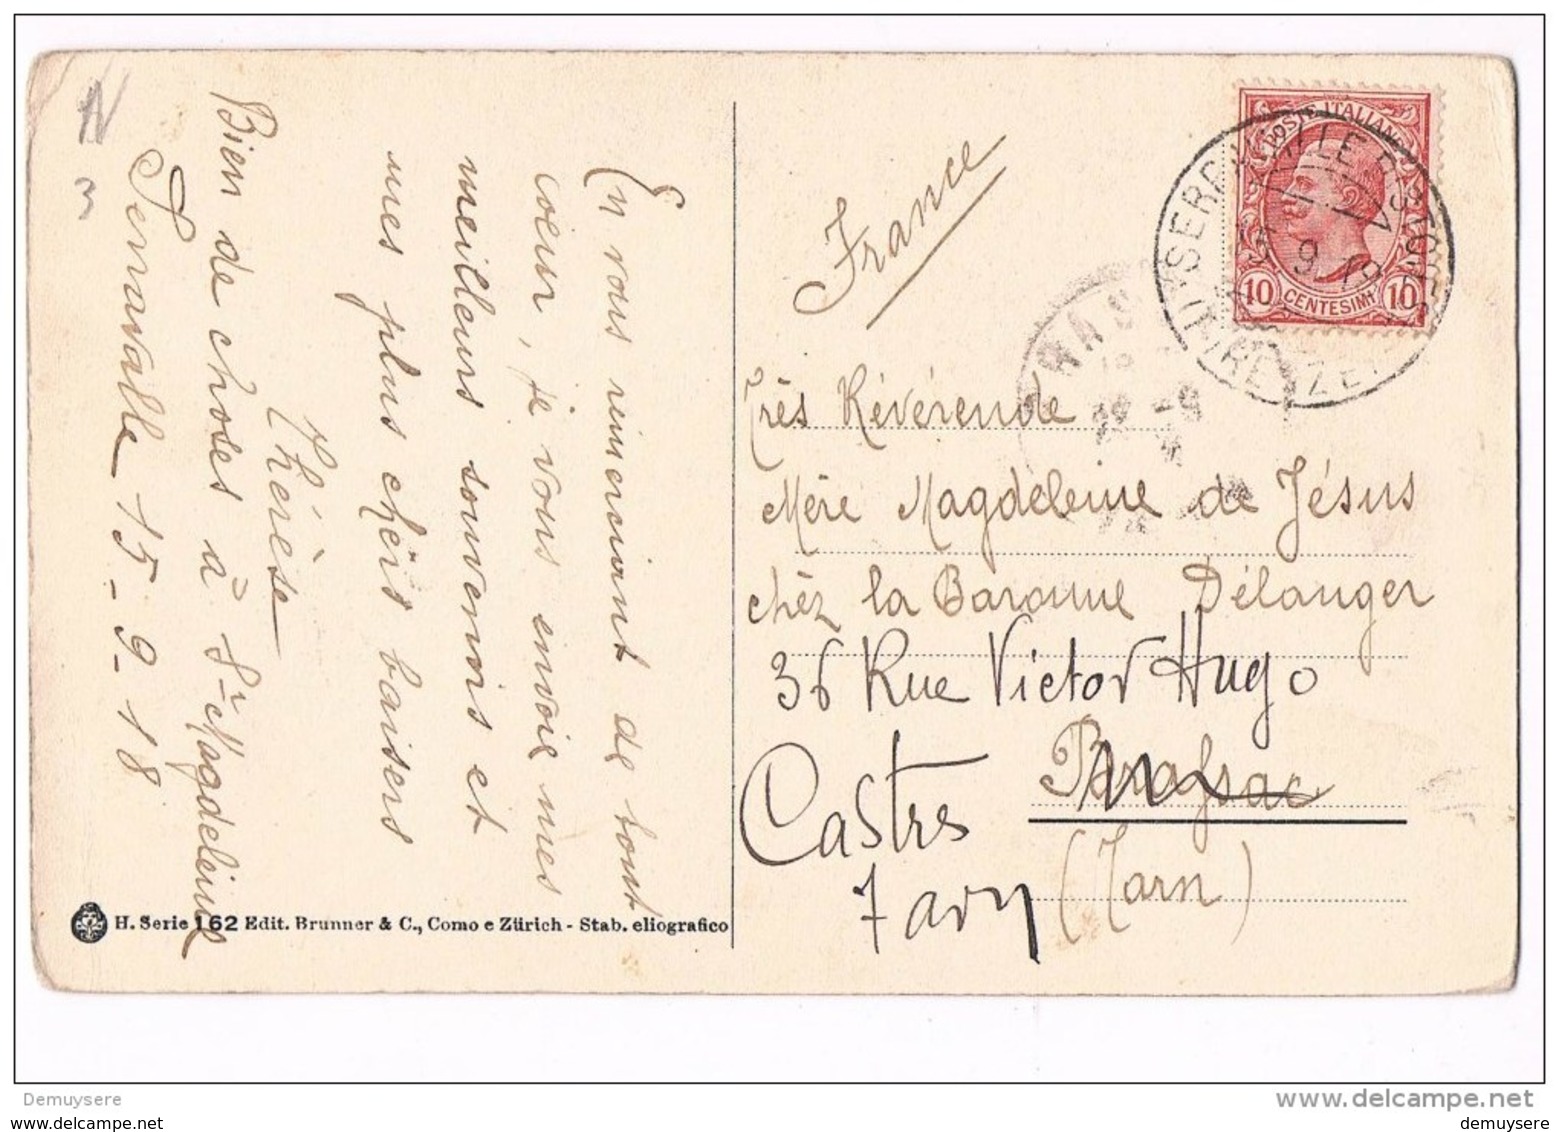 N
3
En vous remerciant de tout
coeur, je vous envoie mes
meilleurs souvenirs et
mes plus chers baisers
Thérèse
Bien de choses à Ste Magdeleine
Serravalle 15-9-18
H. Serie 162 Edit. Brunner & C., Como e Zürich - Stab. eliografico
POSTE ITALIANE
10 CENTESIMI 10
France
Très Révérende
Mère Magdeleine de Jésus
chéz la Baronne Délanger
36 Rue Victor Hugo
Castres
Tarn
(Tarn)
Demuysere
delcampe.net
Demuysere
demuysere